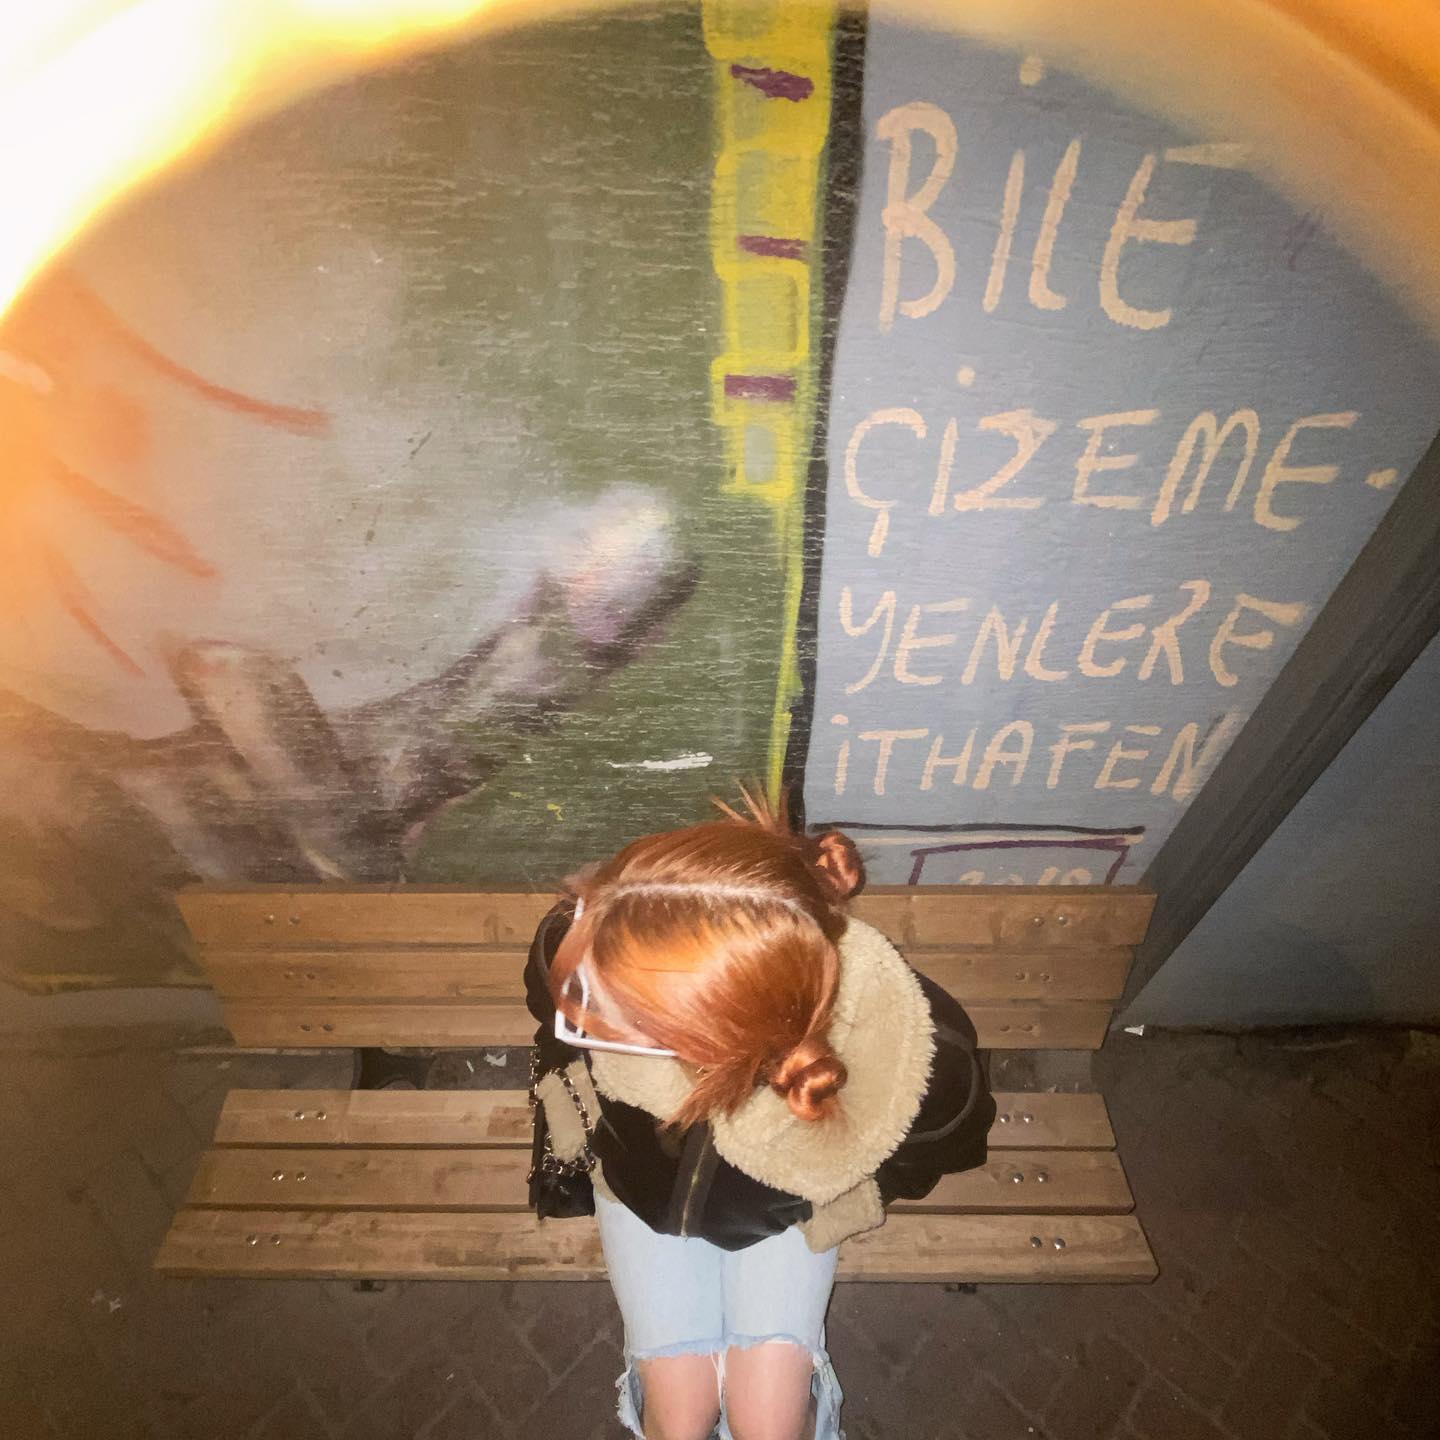 BİLE
ÇİZEME-
YENLERE
İTHAFEN